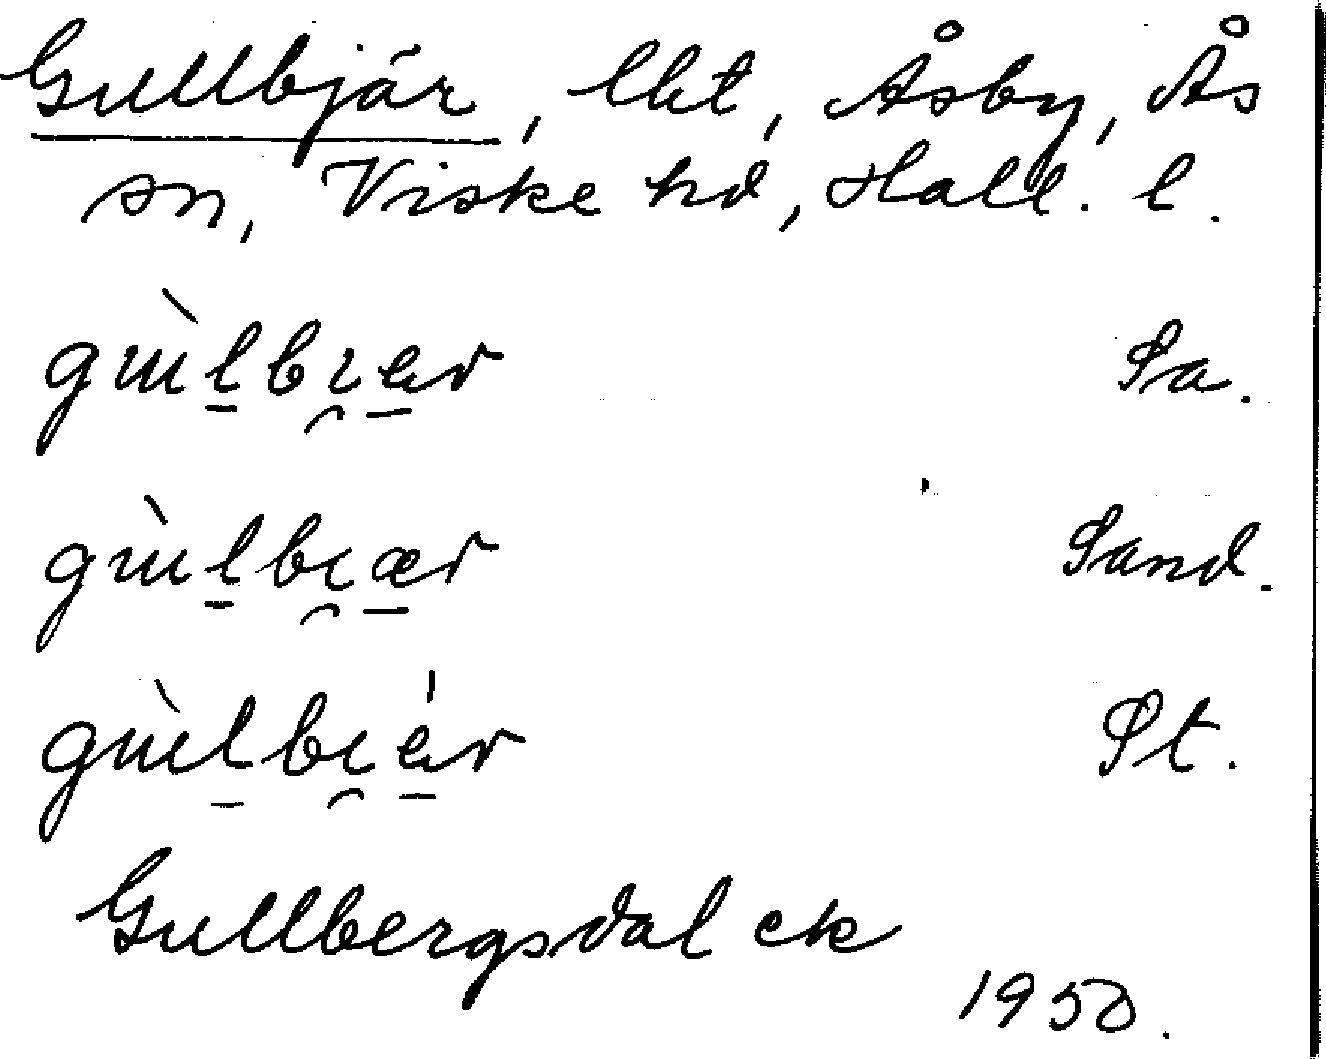 Gullbjär, lht, Åsby, Ås
sn, Viske hd, Hall. l.
gùlbɪær Sa.
gùlbɪær Sand.
gùlbɪǽr St.
Gullbergsdal ek
1950.